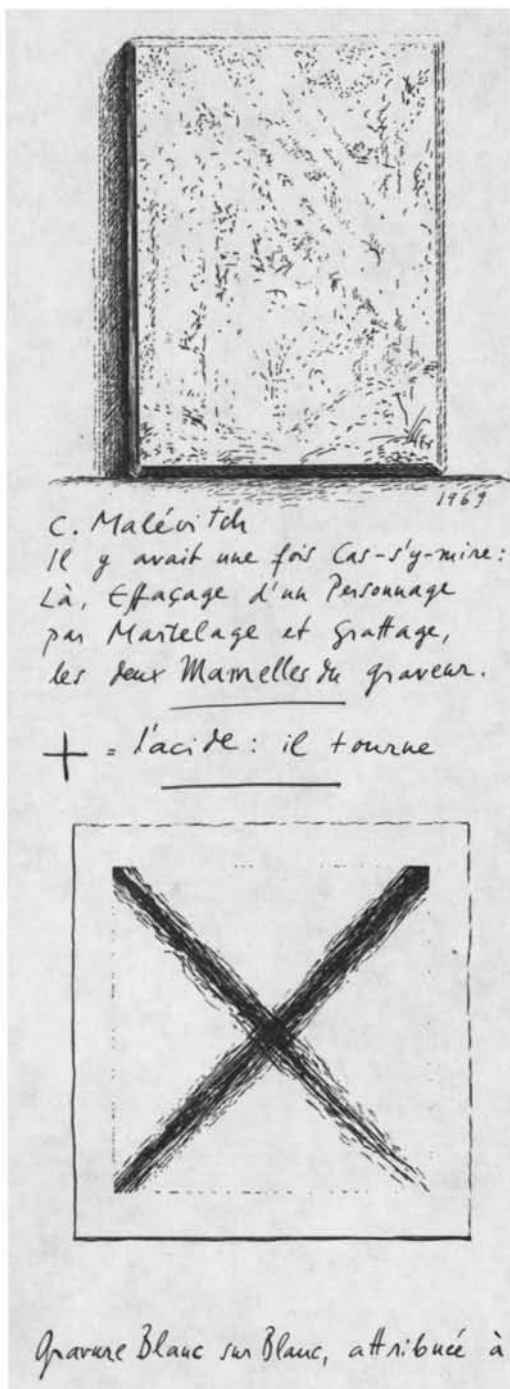 1969
C. Malévitch
Il y avait une fois Cas-s'y-mire:
Là, Effaçage d'un Personnage
par Martelage et grattage,
les deux Mamelles du graveur.
+ = l'acide: il tourne
Gravure Blanc sur Blanc, attribuée à